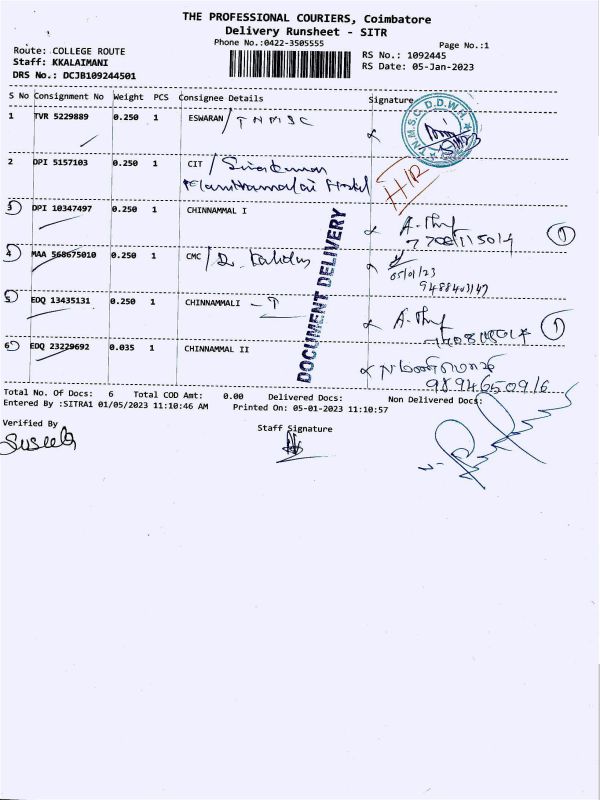 THE PROFESSIONAL COURIERS, Coimbatore
Delivery Runsheet - SITR
Phone No.:0422-3505555
Page No.:1
Route: COLLEGE ROUTE
RS No.: 1092445
Staff: KKALAIMANI
RS Date: 05-Jan-2023
DRS No.: DCJB109244501
S No Consignment No Weight PCS Consignee Details Signature
1 TVR 5229889 0.250 1 ESWARAN / TNMSC
T.N.M.S.C D.D.W.H.
2 DPI 5157103 0.250 1 CIT / Sivakumar
Hostel
3 DPI 10347497 0.250 1 CHINNAMMAL I
4 MAA 568675010 0.250 1 CMC / Dr.
05/01/23
5 EDQ 13435131 0.250 1 CHINNAMMALI - I
6 EDQ 23229692 0.035 1 CHINNAMMAL II
9894650916
DOCUMENT DELIVERY
Total No. Of Docs: 6 Total COD Amt: 0.00 Delivered Docs: Non Delivered Docs:
Entered By :SITRA1 01/05/2023 11:10:46 AM Printed On: 05-01-2023 11:10:57
Verified By
Staff Signature
Suseela